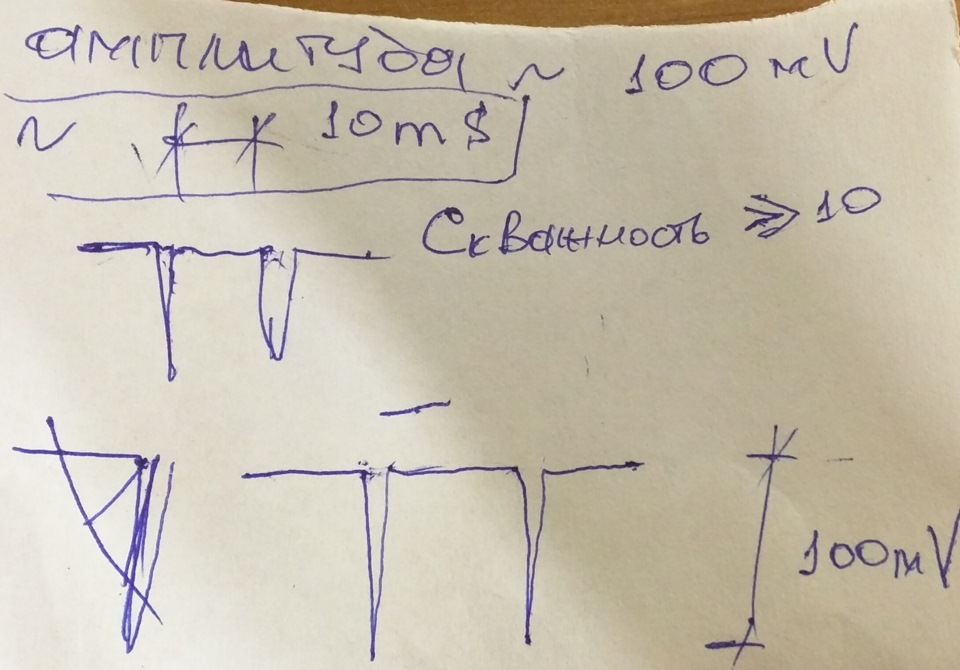 амплитуда ~ 100 мV
~ 10 m S
Скважность ≥ 10
100мV